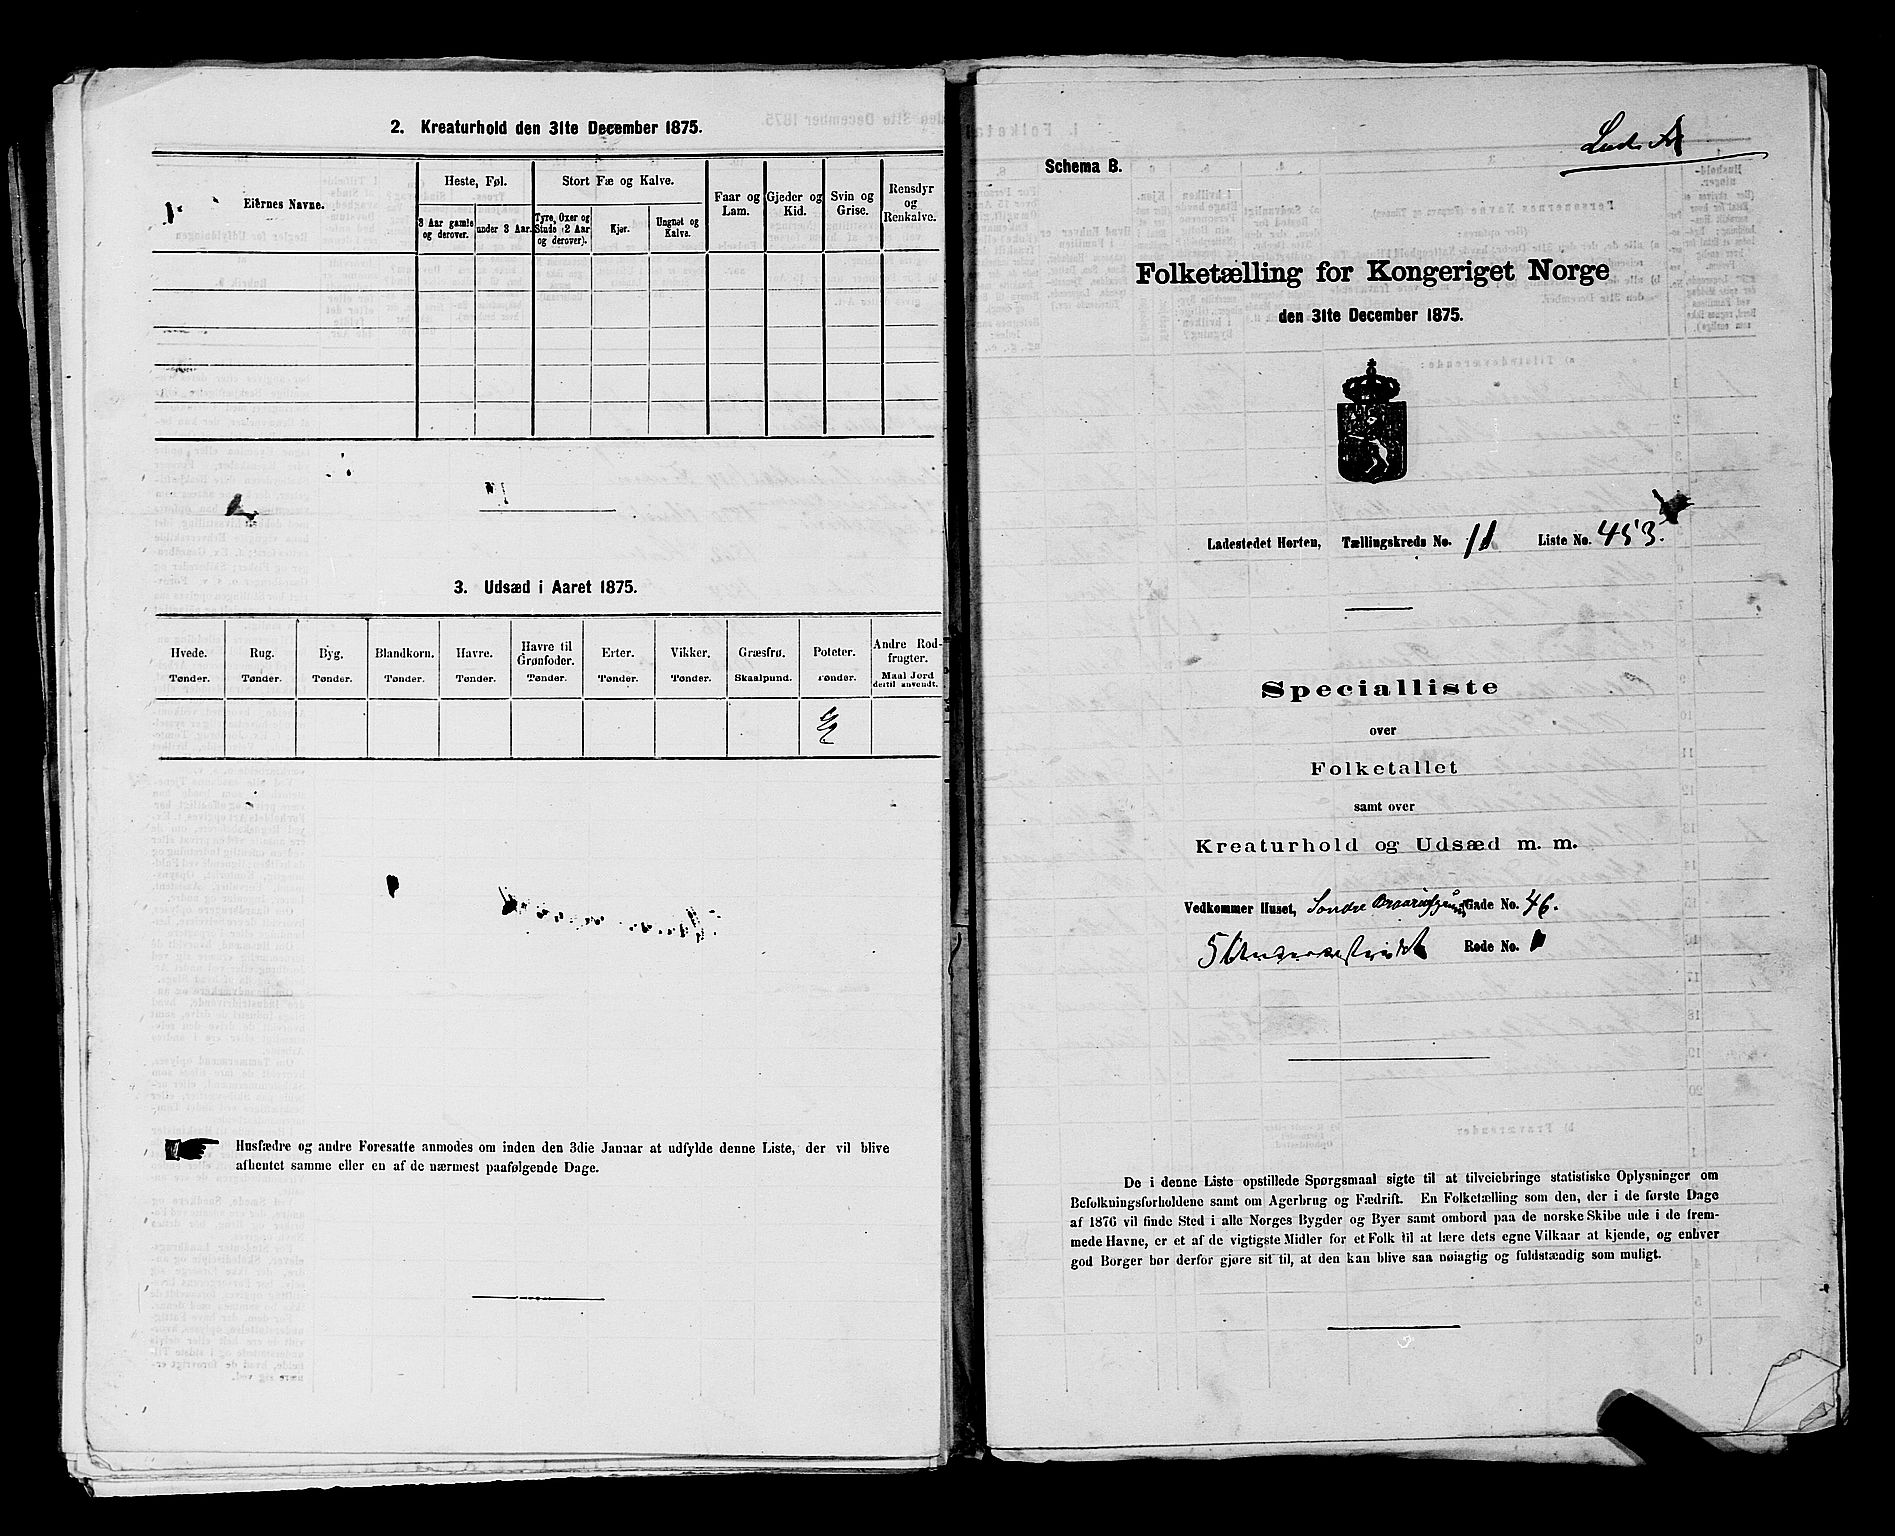 2. Kreaturhold den 31te December 1875.
Eiernes Navne.
Heste, Føl.
Stort Fæ og Kalve.
Faar og Lam.
Gjeder og Kid.
Svin og Grise.
Rensdyr og Renkalve.
3 Aar gamle og derover.
under 3 Aar.
Tyre, Oxer og Stude (2 Aar og derover).
Kjør.
Ungnøt og Kalve.
3. Udsæd i Aaret 1875.
Hvede. Rug. Byg. Blandkorn. Havre. Havre til Grønfoder. Erter. Vikker. Græsfrø. Poteter. Andre Rodfrugter.
Tønder. Tønder. Tønder. Tønder. Tønder. Tønder. Tønder. Tønder. Skaalpund. Tønder. Maal Jord dertil anvendt.
Husfædre og andre Foresatte anmodes om inden den 3die Januar at udfylde denne Liste, der vil blive
afhentet samme eller en af de nærmest paafølgende Dage.
Schema B.
Folketælling for Kongeriget Norge
den 31te December 1875.
Ladestedet Horten, Tællingskreds No. 11 Liste No. 453.
Specialliste
over
Folketallet
samt over
Kreaturhold og Udsæd m. m.
Vedkommer Huset, Søndre Gade No. 46.
Rode No.
De i denne Liste opstillede Spørgsmaal sigte til at tilveiebringe statistiske Oplysninger om
Befolkningsforholdene samt om Agerbrug og Fædrift. En Folketælling som den, der i de første Dage
af 1876 vil finde Sted i alle Norges Bygder og Byer samt ombord paa de norske Skibe ude i de frem-
mede Havne, er et af de vigtigste Midler for et Folk til at lære dets egne Vilkaar at kjende, og enhver
god Borger bør derfor gjøre sit til, at den kan blive saa nøiagtig og fuldstændig som muligt.